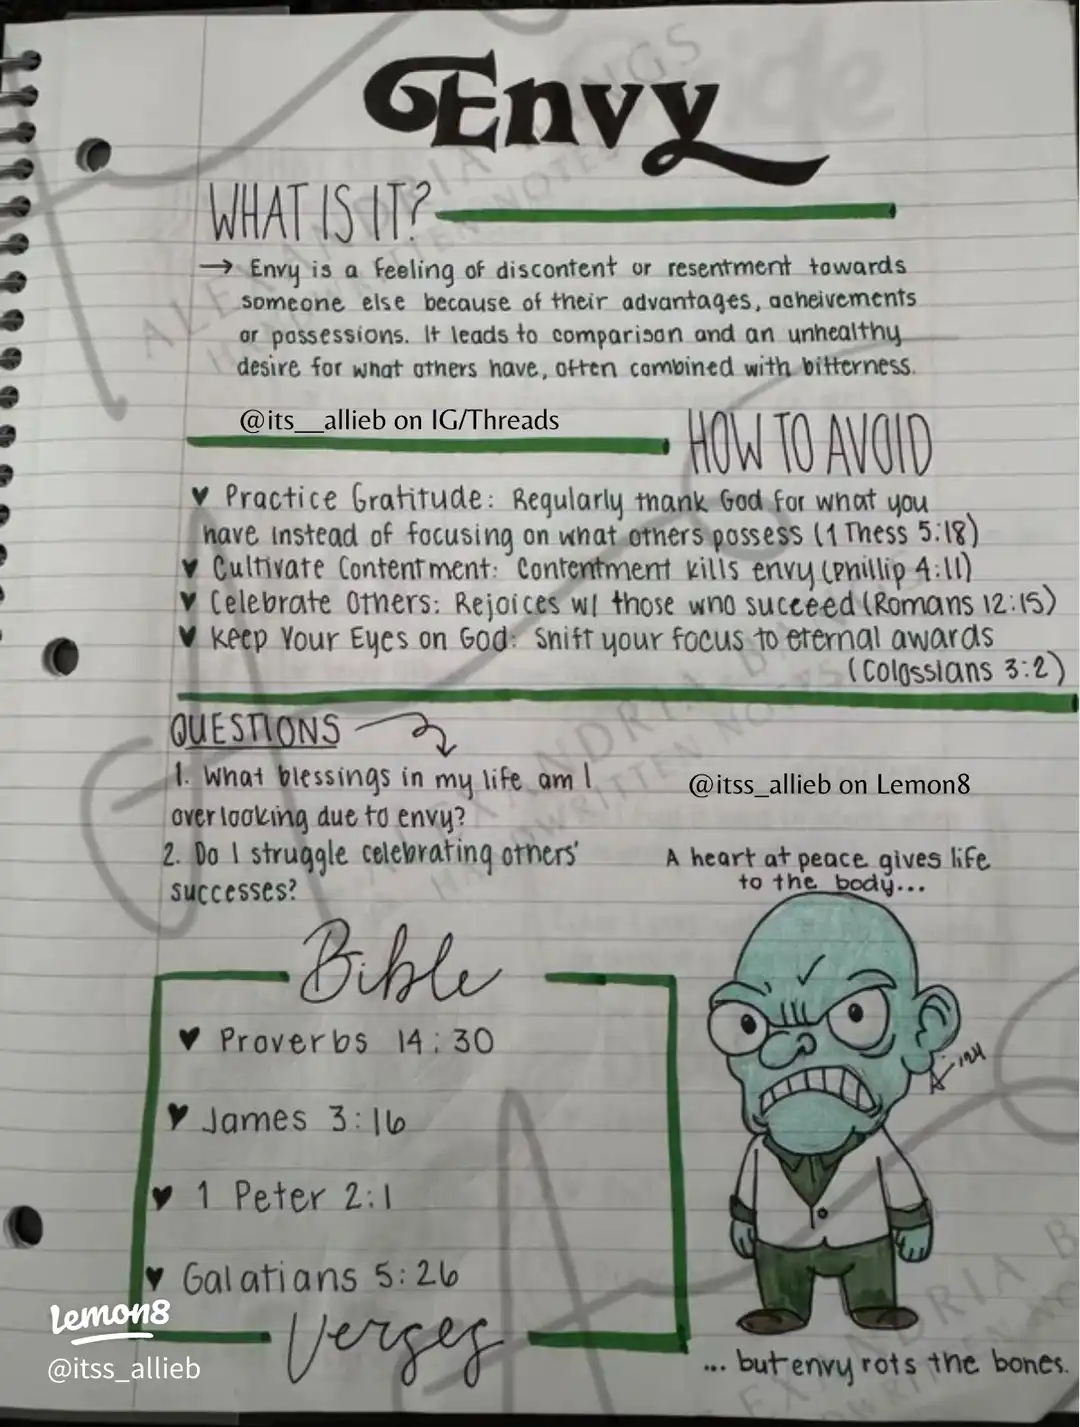 Envy
WHAT IS IT?
→ Envy is a feeling of discontent or resentment towards
someone else because of their advantages, acheivements
or possessions. It leads to comparison and an unhealthy
desire for what others have, often combined with bitterness.
@its__allieb on IG/Threads
HOW TO AVOID
♥ Practice Gratitude: Regularly thank God for what you
have instead of focusing on what others possess (1 Thess 5:18)
♥ Cultivate Contentment: Contentment kills envy (Phillip 4:11)
♥ Celebrate Others: Rejoices w/ those who succeed (Romans 12:15)
♥ Keep Your Eyes on God: Shift your focus to eternal awards
(Colossians 3:2)
QUESTIONS
1. What blessings in my life am I
overlooking due to envy?
2. Do I struggle celebrating others'
successes?
@itss_allieb on Lemon8
A heart at peace gives life
to the body...
Bible
♥ Proverbs 14:30
♥ James 3:16
♥ 1 Peter 2:1
♥ Galatians 5:26
Verses
A-'24
... but envy rots the bones.
Lemon8
@itss_allieb
ALEXANDRIA BANGS
HANDWRITTEN NOTES